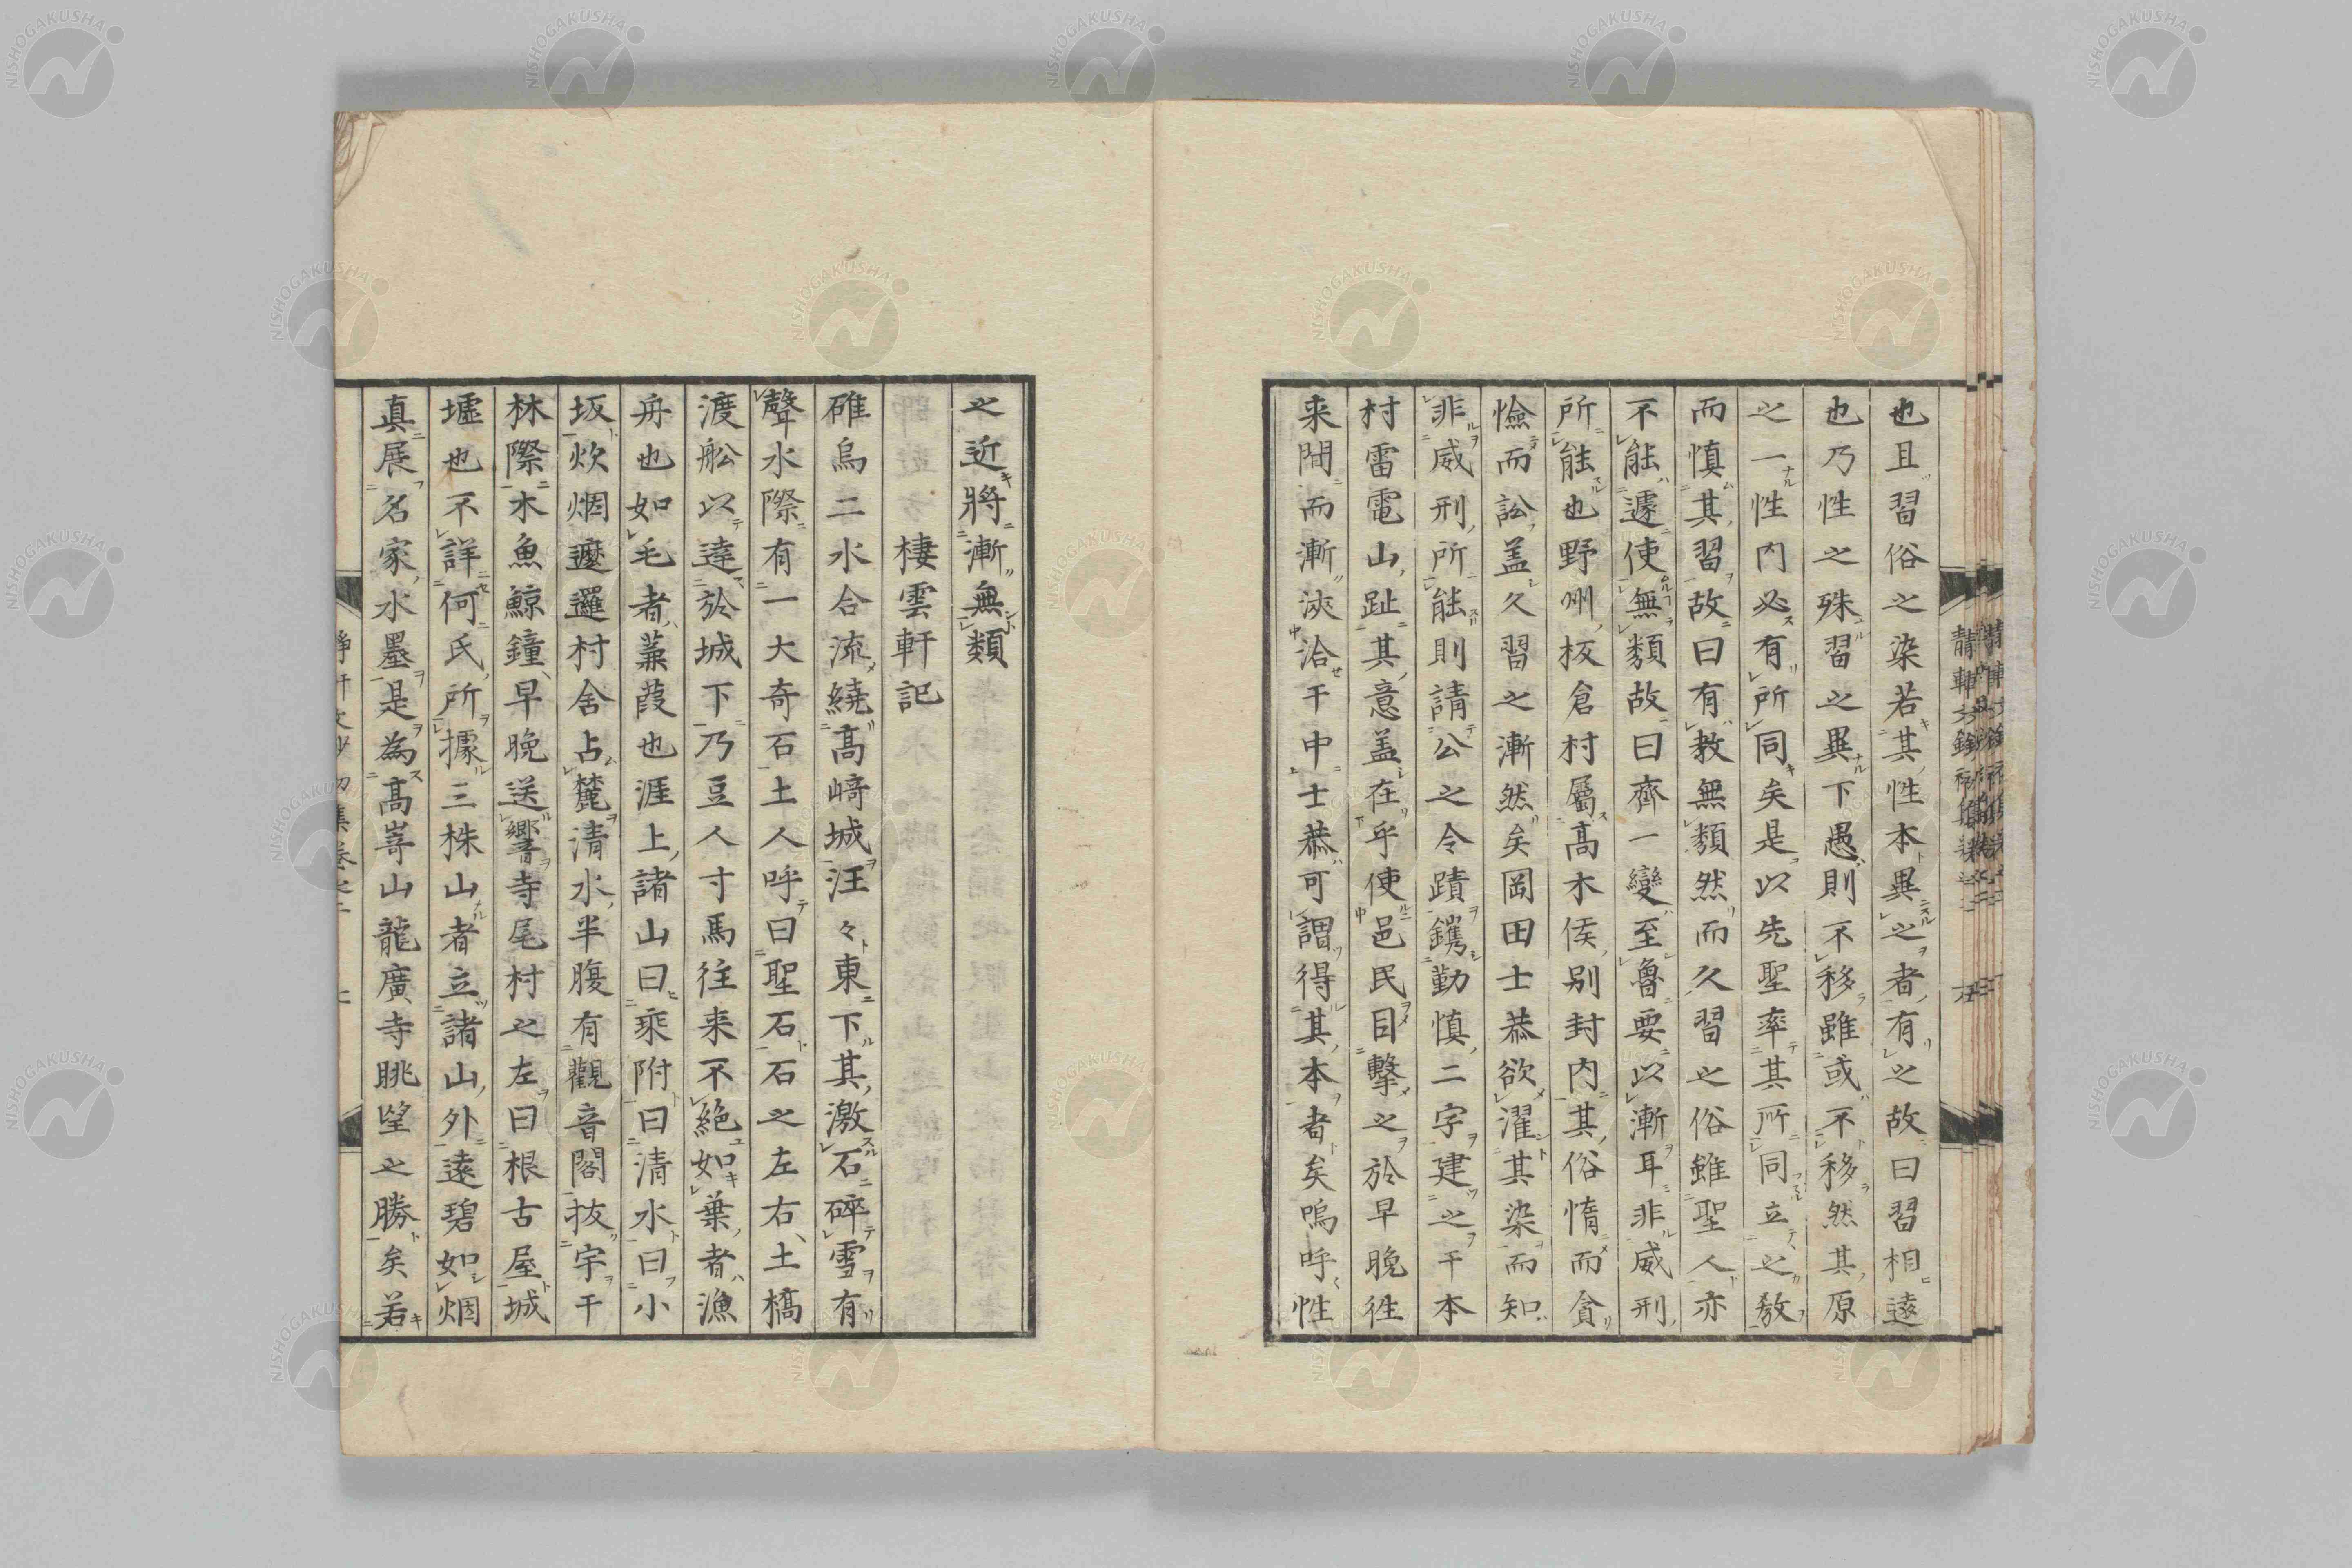 也且習俗之染若其性本異之者有之故曰習相遠
也乃性之殊習之異下愚則不移雖或不移然其原
之一性内必有所同矣是以先聖率其所同立之教
而慎其習故曰有教無類然而久習之俗雖聖人亦
不能遽使無類故曰齊一變至魯要以漸耳非威刑
所能也野州板倉村屬高木侯別封内其俗惰而貪
憸而訟盖久習之漸然矣岡田士恭欲濯其染而知
非威刑所能則請公之令蹟鐫勤慎二字建之于本
村雷電山趾其意盖在乎使邑民目擊之於早晩徃
来間而漸浹洽于中士恭可謂得其本者矣嗚呼性
之近將漸無類
棲雲軒記
碓烏二水合流繞高﨑城汪々東下其激石碎雪有
聲水際有一大奇石土人呼曰聖石石之左右土橋
渡舩以達於城下乃豆人寸馬往来不絶如葉者漁
舟也如毛者蒹葭也涯上諸山曰乘附曰清水曰小
坂炊烟邐村舍占麓清水半腹有觀音閣抜宇于
林際木魚鯨鐘早晩送響寺尾村之左曰根古屋城
墟也不詳何氏所據三株山者立諸山外遠碧如烟
真展名家水墨是為高嵜山龍廣寺眺望之勝矣若